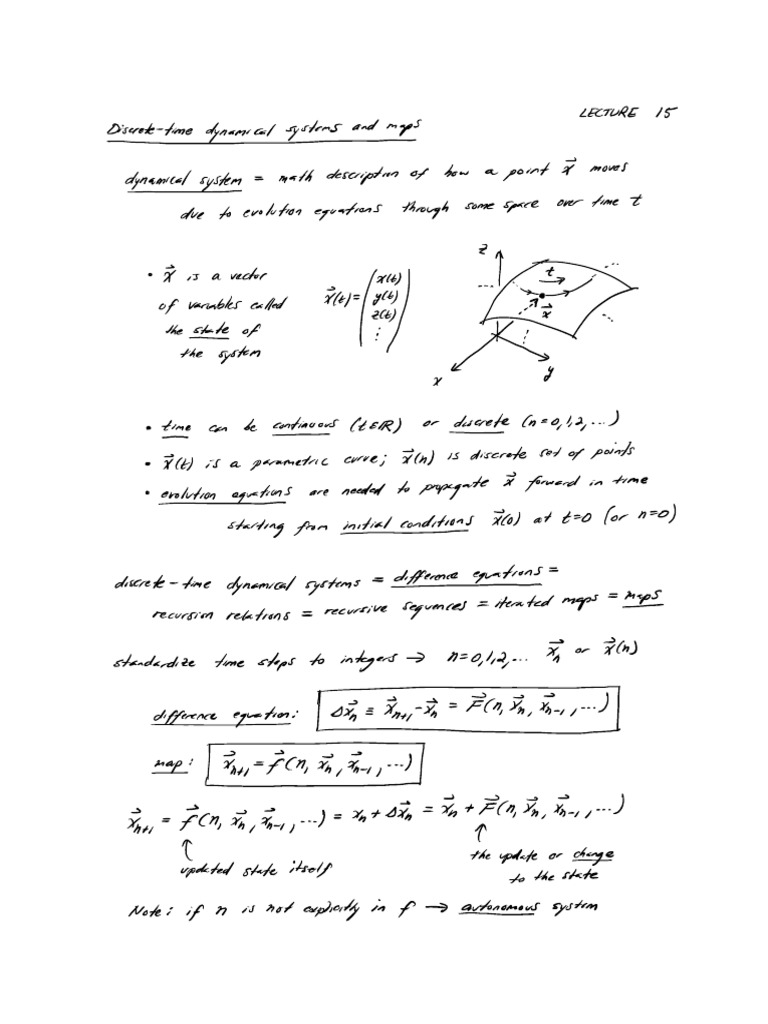 LECTURE 15
Discrete-time dynamical systems and maps
dynamical system = math description of how a point x⃗ moves
due to evolution equations through some space over time t
• x⃗ is a vector
of variables called
the state of
the system
x⃗(t) = (x(t)
y(t)
z(t)
⋮)
z
t
x⃗
x
y
• time can be continuous (t∈ℝ) or discrete (n=0,1,2,...)
• x⃗(t) is a parametric curve; x⃗(n) is discrete set of points
• evolution equations are needed to propagate x⃗ forward in time
starting from initial conditions x⃗(0) at t=0 (or n=0)
discrete-time dynamical systems = difference equations =
recursion relations = recursive sequences = iterated maps = maps
standardize time steps to integers → n=0,1,2,... x⃗ₙ or x⃗(n)
difference equation: Δx⃗ₙ ≡ x⃗ₙ₊₁ - x⃗ₙ = F⃗(n, x⃗ₙ, x⃗ₙ₋₁, ...)
map: x⃗ₙ₊₁ = f⃗(n, x⃗ₙ, x⃗ₙ₋₁, ...)
x⃗ₙ₊₁ = f⃗(n, x⃗ₙ, x⃗ₙ₋₁, ...) = xₙ + Δx⃗ₙ = x⃗ₙ + F⃗(n, x⃗ₙ, x⃗ₙ₋₁, ...)
↑ updated state itself
↑ the update or change
to the state
Note: if n is not explicitly in f → autonomous system